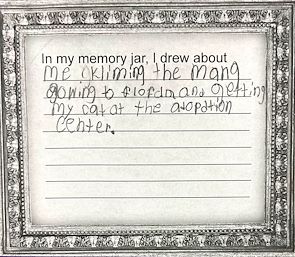 In my memory jar, I drew about
me kliming the mang
gowing to flordm, and getting
my cat at the adopdtion
center.